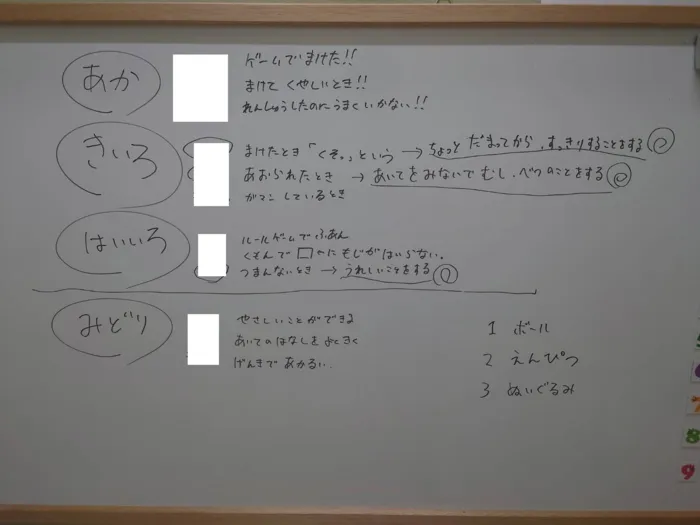 あか
ゲームでまけた!!
まけて くやしいとき!!
れんしゅうしたのにうまくいかない!!
きいろ
まけたとき「くそ。」という → ちょっと だまってから、すっきりすることをする
あおられたとき → あいてをみないで むし、べつのことをする
ガマンしているとき
はいいろ
ルールゲームでふあん
くもんで □ にもじがはいらない。
つまんないとき → うれしいことをする
みどり
やさしいことができる
あいてのはなしをよくきく
げんきであかるい。
1 ボール
2 えんぴつ
3 ぬいぐるみ
7
8
9